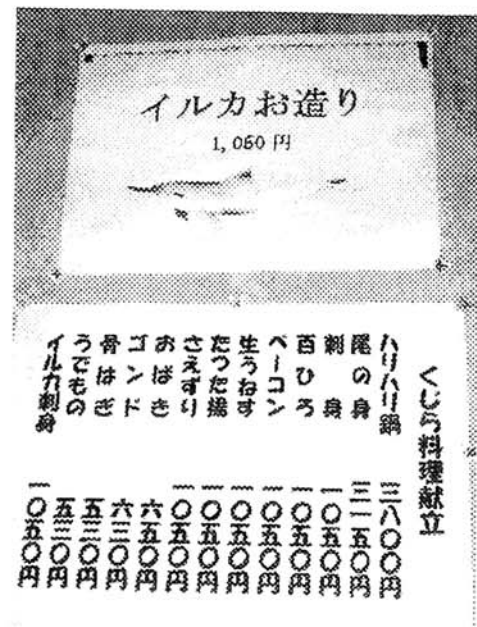 イルカお造り
1,050 円
くじら料理献立
ハリハリ鍋 三八〇〇円
尾の身 三一五〇円
刺身 一〇五〇円
百ひろ 一〇五〇円
ベーコン 一〇五〇円
生うねす 一〇五〇円
たつた揚 一〇五〇円
さえずり 一〇五〇円
おばき 六五〇円
ゴンド 六三〇円
骨はぎ 五三〇円
うでもの 五三〇円
イルカ刺身 一〇五〇円